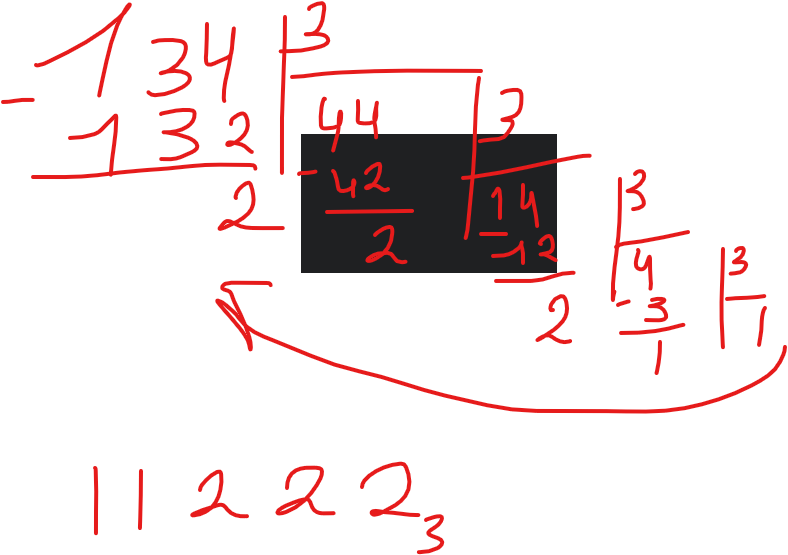 134 3
- 132 44 3
2 - 42 14 3
2 - 12 4 3
2 - 3 1
1
11222₃